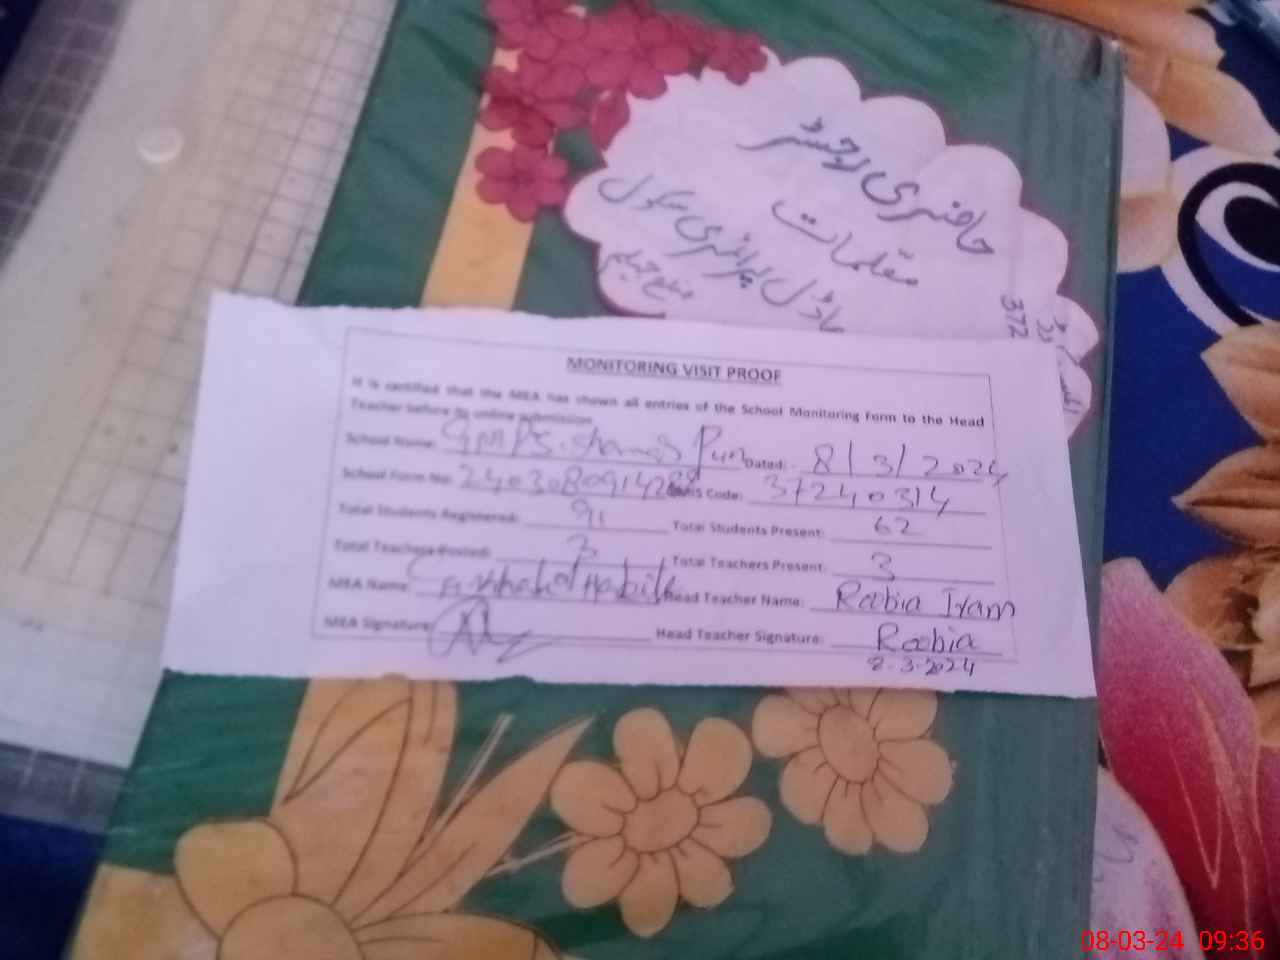 حاضری رجسٹر
معلمات
ماڈل پرائمری سکول
ضلع جہلم
372
MONITORING VISIT PROOF
It is certified that the MEA has shown all entries of the School Monitoring Form to the Head
Teacher before its online submission
School Name: GMPS. Shamas Pur Dated: - 8/3/2024
School Form No: Code: 37240314
Total Students Registered: 91 Total Students Present: 62
Total Teachers Posted: 3 Total Teachers Present: 3
MEA Name: Habib Head Teacher Name: Roobia Iram
MEA Signature: Head Teacher Signature: Roobia
8-3-2024
08-03-24 09:36